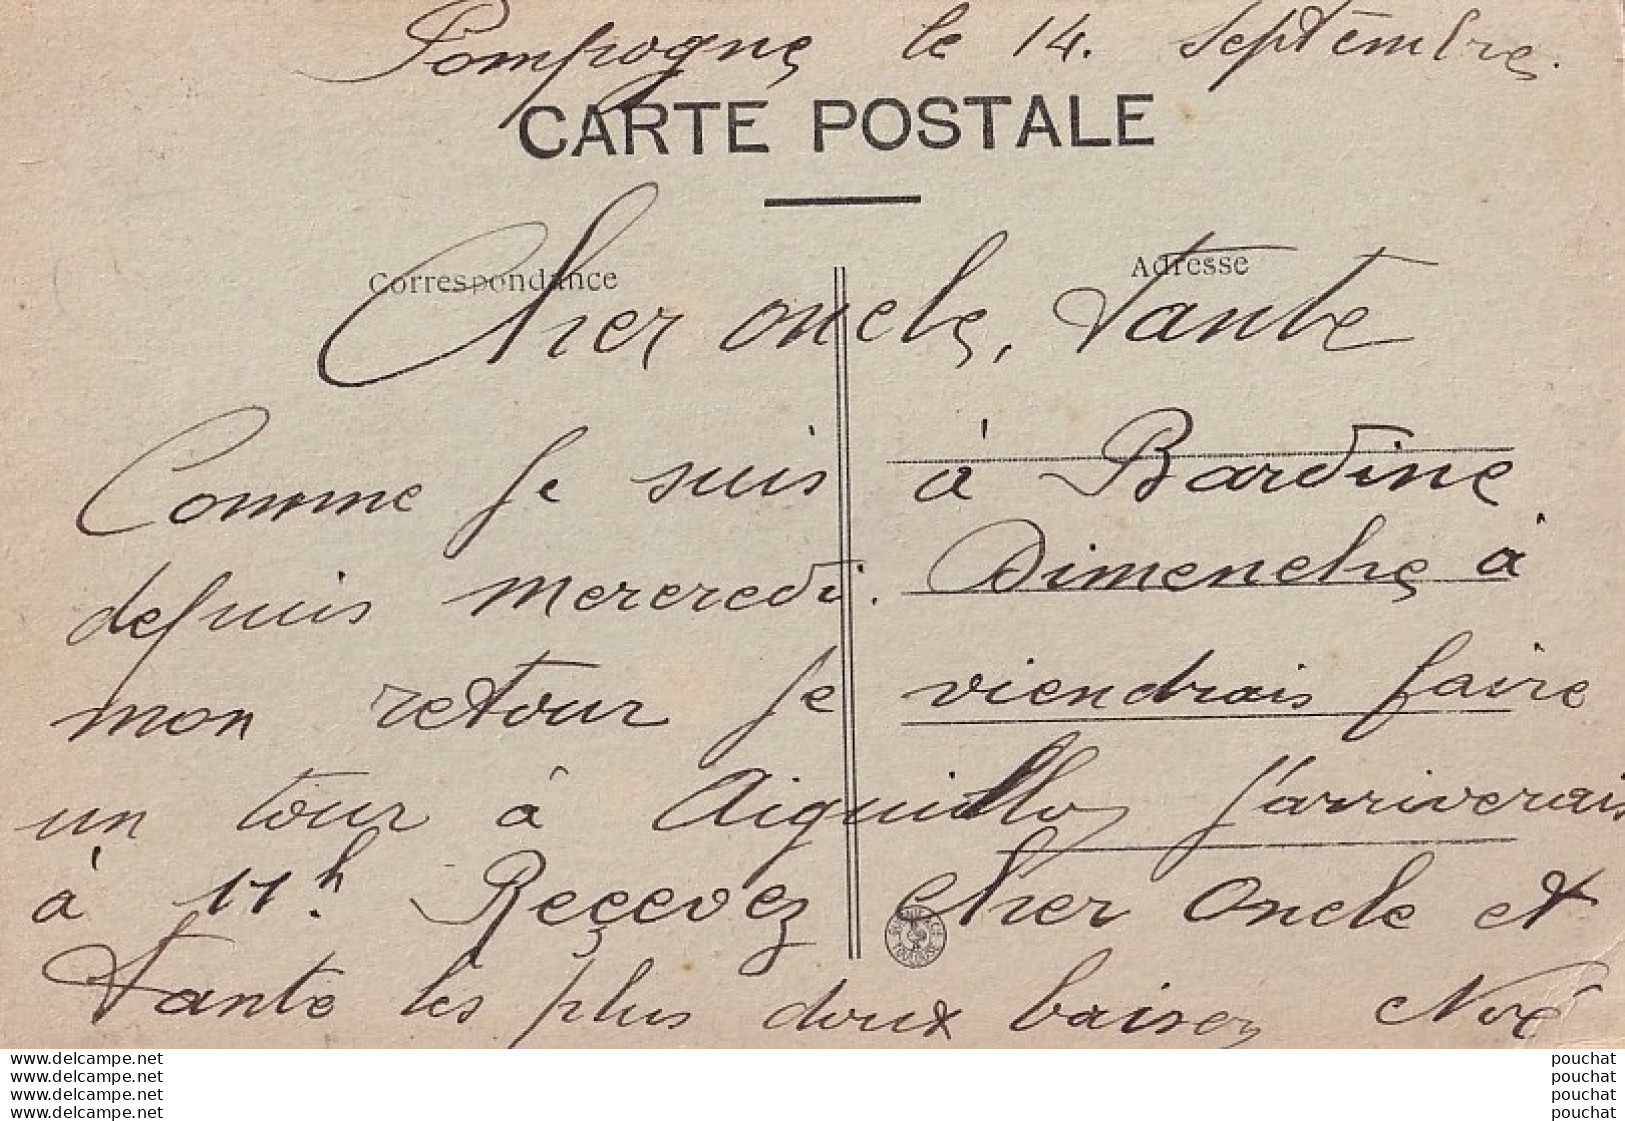 Pompogne le 14. Septembre.
CARTE POSTALE
Correspondance
Adresse
Cher oncle, Tante
Comme je suis à Bardine
depuis mercredi. Dimenche à
mon retour je viendrais faire
un tour à Aiguillon j'arriverais
à 11h. Reçevez cher Oncle et
Tante les plus doux baisers Noé
www.delcampe.net
www.delcampe.net
www.delcampe.net
www.delcampe.net
pouchat
pouchat
pouchat
pouchat